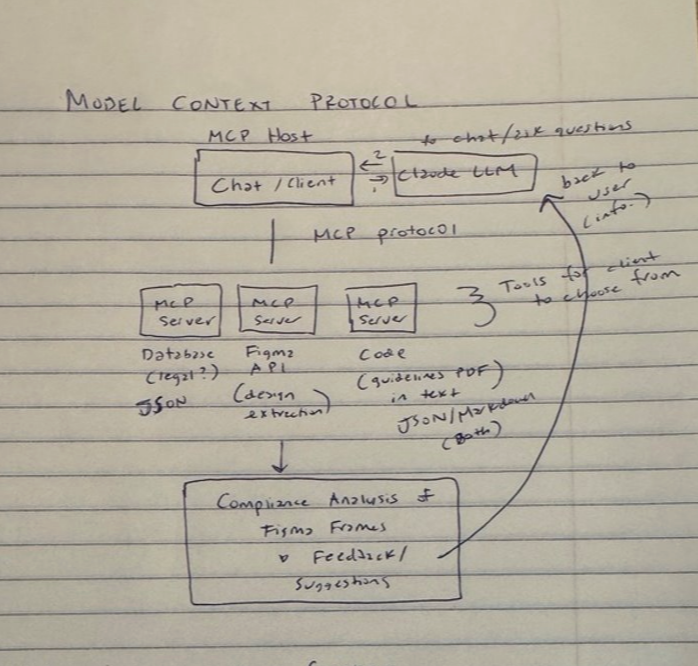 MODEL CONTEXT PROTOCOL
MCP Host
to chat/ask questions
Chat / Client
2
Claude LLM
back to
user
(info.)
MCP protocol
MCP
Server
MCP
Server
MCP
Server
Tools for client
to choose from
Database
(legal?)
JSON
Figma
API
(design
extraction)
Code
(guidelines PDF)
in text
JSON/Markdown
(Both)
Compliance Analysis of
Figma Frames
Feedback/
Suggestions